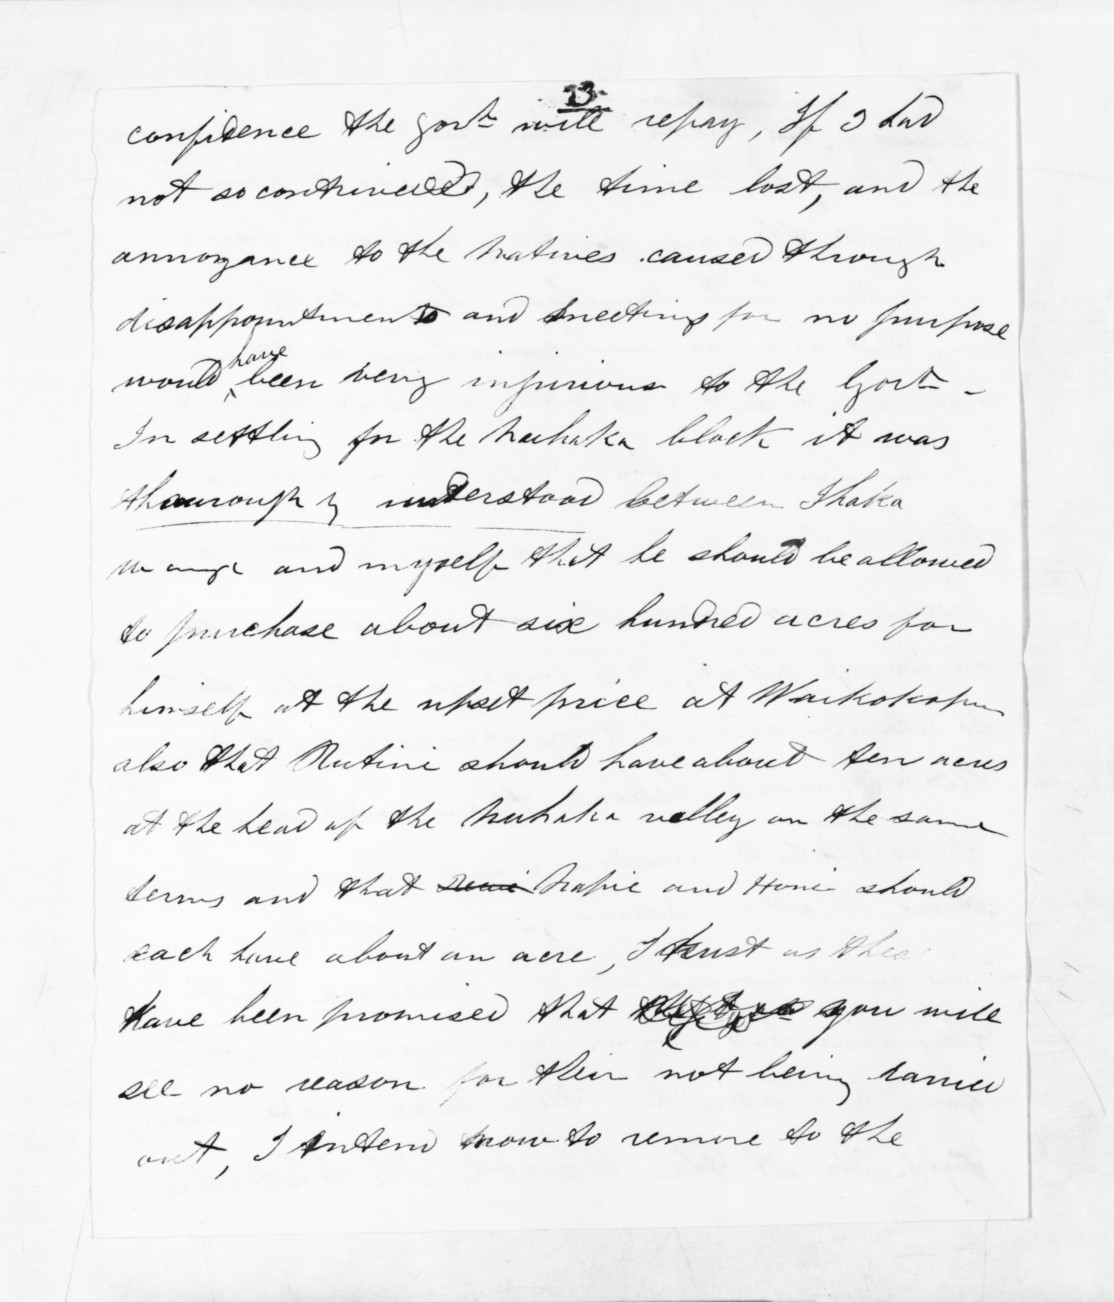 13.
confidence the govt. will repay, If I had
not so contrived, the time lost, and the
annoyance to the Natives caused through
disappointments and meetings for no purpose
would have been very injurious to the Govt. -
In settling for the Nuhaka block it was
thourough ly understood between Ihaka
and myself that he should be allowed
to purchase about six hundred acres for
himself at the upset price at Waikokopu
also that Rutini should have about ten acres
at the head of the Nuhaka valley on the same
terms and that Napie and Honi should
each have about an acre, I trust as these
have been promised that you will
see no reason for their not being carried
out, I intend now to remove to the